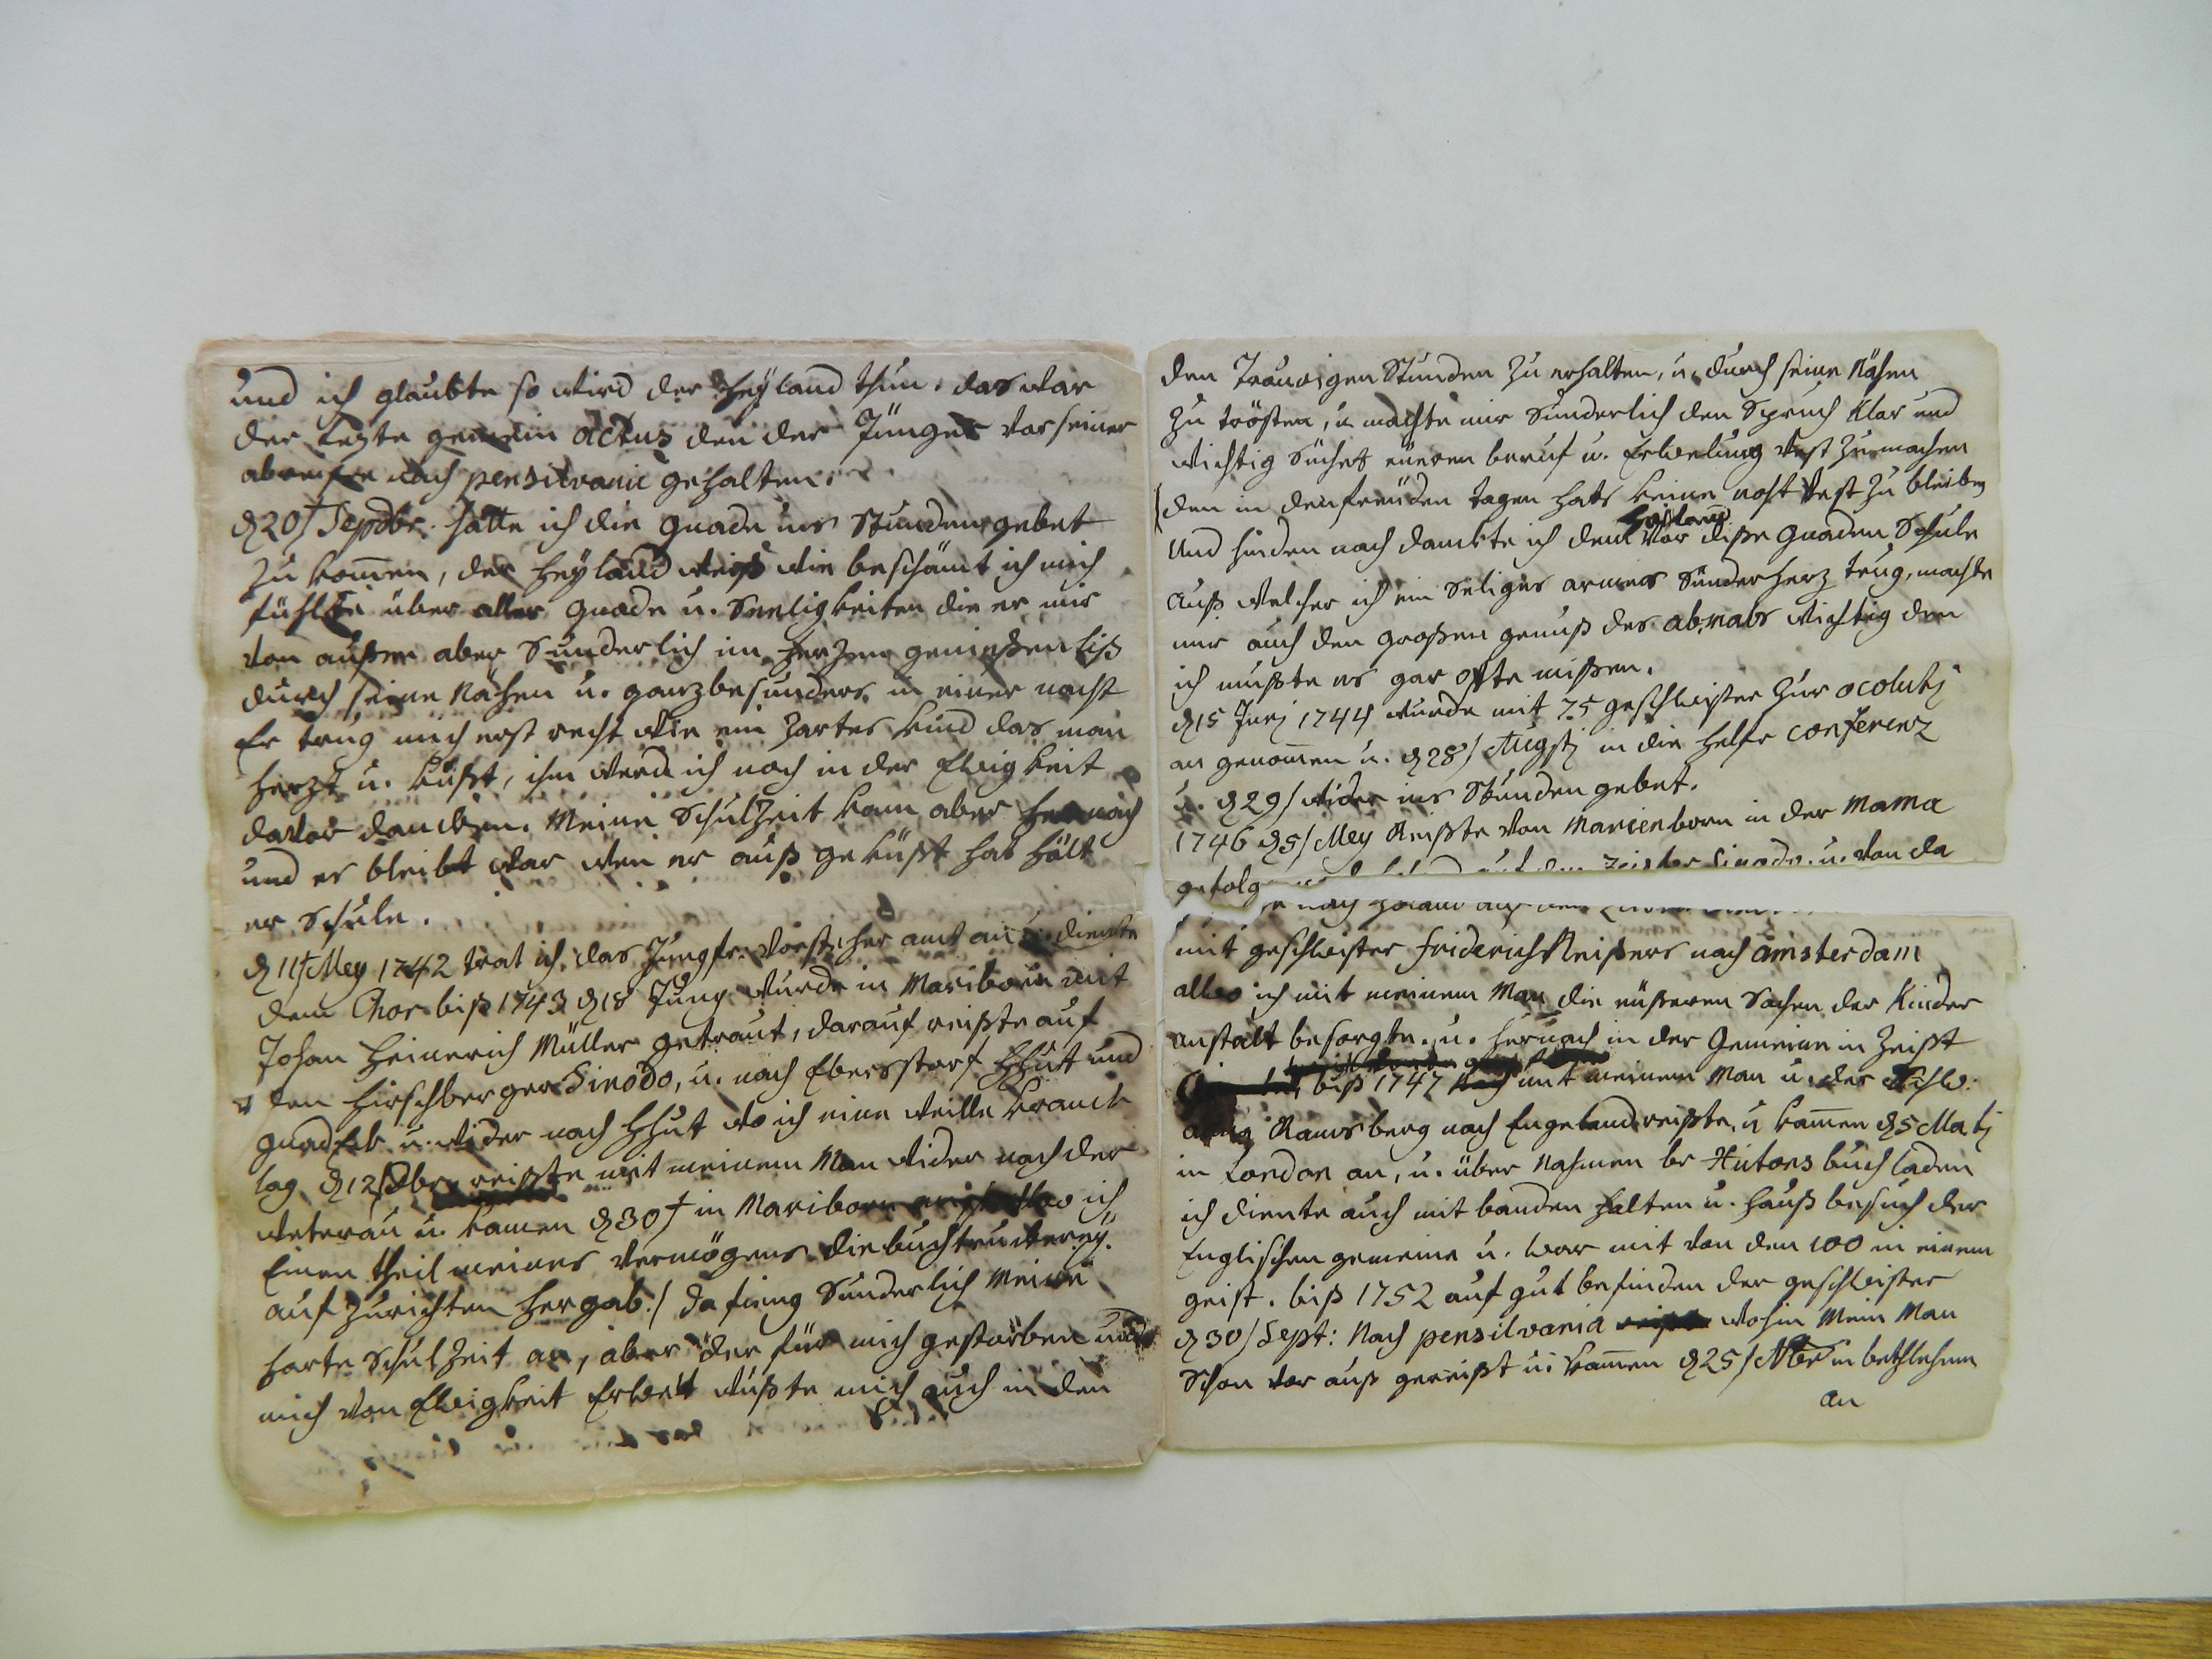 und ich glaubte so wird der Heyland thun. das war
der lezte gemein actus den der Jünger vor seiner
abreise nach pensilvanie gehalten.
d 20t Sepdbr. hatte ich die gnade ins Stunden gebet
zu kom̄en, der Heyland weiß wie beschämt ich mich
fühlte über aller gnade u. Seeligkeiten die er mir
von außen aber Sunderlich im herzen genießen liß
durch seine Nähen u. ganz besunders in einer nacht
Er trug mich erst recht wie ein zartes kind das man
herzt u. küßt, ihm werd ich noch in der Ewigkeit
davor dancken. Meine Schulzeit kam aber hernach
und es bleibt war wen er auß geküßt hat hält
er Schule.
d 11t Mey 1742 trat ich das Jungfr. vorsteher amt an u. diente
dem Chor biß 1743 d 18 Juny wurde in Mariborn mit
Johan Heinerich Müller getraut, darauf reißte auf
den Hirschberger Sinodo, u. nach Ebersstorf HHut und
gnadEk u. wider nach HHut wo ich eine weille kranck
lag d 12/ 8br reißte mit meinem Man wider nach der
weterau u. kamen d 30t in Mariborn wo ich
Einen theil meines vermögens die buchtruckerey
auf zurichten hergab / da fieng Sunderlich Meine
harte Schulzeit an, aber der für mich gestorben und
mich von Ewigkeit Erwelt wußte mich auch in den
den Traurigen Stunden zu erhalten, u. durch seine Nähen
zu trösten, u. machte mir Sunderlich den Spruch klar und
wichtig Suchet eueren beruf u. Erwelung vest zu machen
den in den freuden tagen hats keine noht vest zu bleiben
Heyland
Und hinden nach danckte ich dem vor diße gnaden Schule
auß welcher ich ein Seliges armes Sünderherz trug, machte
mir auch den großen genuß des abmals wichtig den
ich mußte es gar ofte mißen.
d 15 Juni 1744 wurde mit 75 geschwister zur acoluti
an genom̄en u. d 28/ Augsti in die helfer conferenz
u. d 29/ wider ins Stunden gebet.
1746 d 5/ Mey Reißte von Marienborn in der Mama
gefolg nach Holand auf den Zeister Sinodo. u. von da
mit geschwister friderich Reißers nach amsterdam
alwo ich mit meinem Man die eußeren Sachen der Kinder
anstalt besorgte. u. hernach in der Gemeine in Zeißt
biß 1747 mit meinem Man u. der Schw:
anna Ramsberg nach Engeland reißte, u kam̄en d 5 Marti
in London an, u. über Nahmen br Hutons buch laden
ich diente auch mit banden halten u. hauß besuch der
Englischen gemeine u. war mit von den 100 in einem
geist. biß 1752 auf gut befinden der geschwister
d 30/ Sept: Nach pensilvania wohin Mein Man
Schon vor auß gereißt u. kam̄en d 25/ Nbr in bethlehem
an